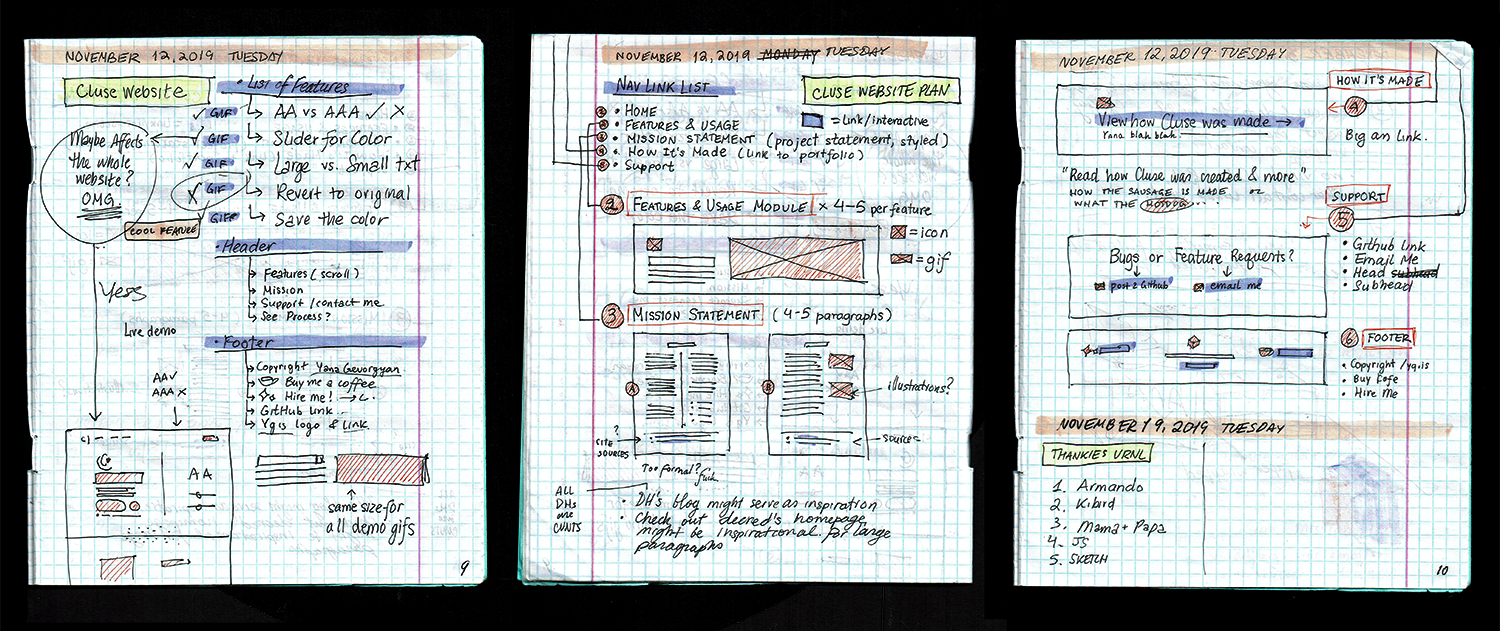 NOVEMBER 12, 2019 TUESDAY
CLUSE WEBSITE
• List of Features
GIF AA vs AAA ✓ X
GIF Slider for Color
GIF Large vs. Small txt
GIF Revert to original
GIF Save the color
Maybe Affects
the whole
website?
OMG.
COOL FEATURE
Yess
Live demo
AA✓
AAA X
• Header
Features (scroll)
Mission
Support / contact me
See Process?
• Footer
Copyright Yana Gevorgyan
Buy me a coffee
Hire me!
GitHub link
Yg.is logo & link
AA
same size for
all demo gifs
9
NOVEMBER 12, 2019 MONDAY TUESDAY
NAV LINK LIST
CLUSE WEBSITE PLAN
= Link / interactive
1 • HOME
2 • FEATURES & USAGE
3 • MISSION STATEMENT (project statement, styled)
4 • HOW IT'S MADE (link to portfolio)
5 • Support
2 FEATURES & USAGE MODULE × 4-5 per feature
= icon
= gif
3 MISSION STATEMENT (4-5 paragraphs)
A
B
illustrations?
?
CITE
SOURCES
source
Too formal? fuck.
ALL
DHs
are
CUNTS
• DH's blog might serve as inspiration
• Check out decred's homepage,
might be inspirational for large
paragraphs
NOVEMBER 12, 2019 TUESDAY
HOW IT'S MADE
4
View how Cluse was made →
Yana blah blah
Big an link.
"Read how Cluse was created & more"
HOW THE SAUSAGE IS MADE or
WHAT THE HOTDOG...
SUPPORT
5
Bugs or Feature Requests?
post 2 Github
email me
• Github link
• Email Me
• Head subhead
• Subhead
6 FOOTER
• Copyright / yg.is
• Buy Cofe
• Hire Me
NOVEMBER 19, 2019 TUESDAY
THANKIES URNL
1. Armando
2. Kibird
3. Mama + Papa
4. JS
5. SKETCH
10